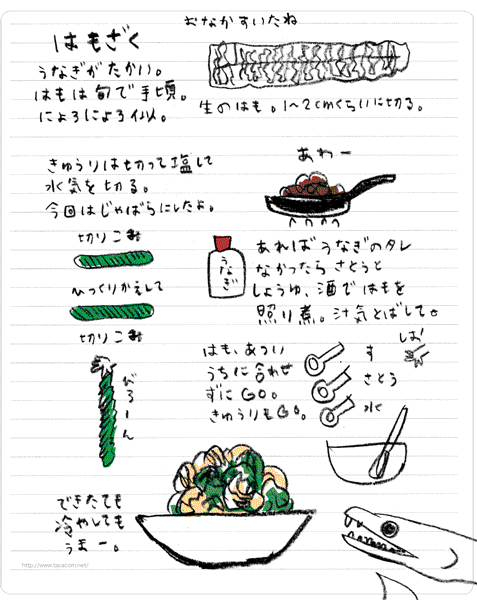 おなかすいたね
はもざく
うなぎがたかい。
はもは旬で手頃。
にょろにょろ似。
生のはも。1〜2cmくらいに切る。
きゅうりは切って塩して
水気を切る。
今回はじゃばらにしたよ。
あわー
切りこみ
ひっくりかえして
切りこみ
びろーん
うなぎ
あればうなぎのタレ
なかったらさとうと
しょうゆ、酒ではもを
照り煮。汁気とばしてね
はも、あつい
うちに合わせ
ずにGO。
きゅうりもGO。
す
さとう
水
しお
できたても
冷やしても
うまー。
http://www.tacacom.net/